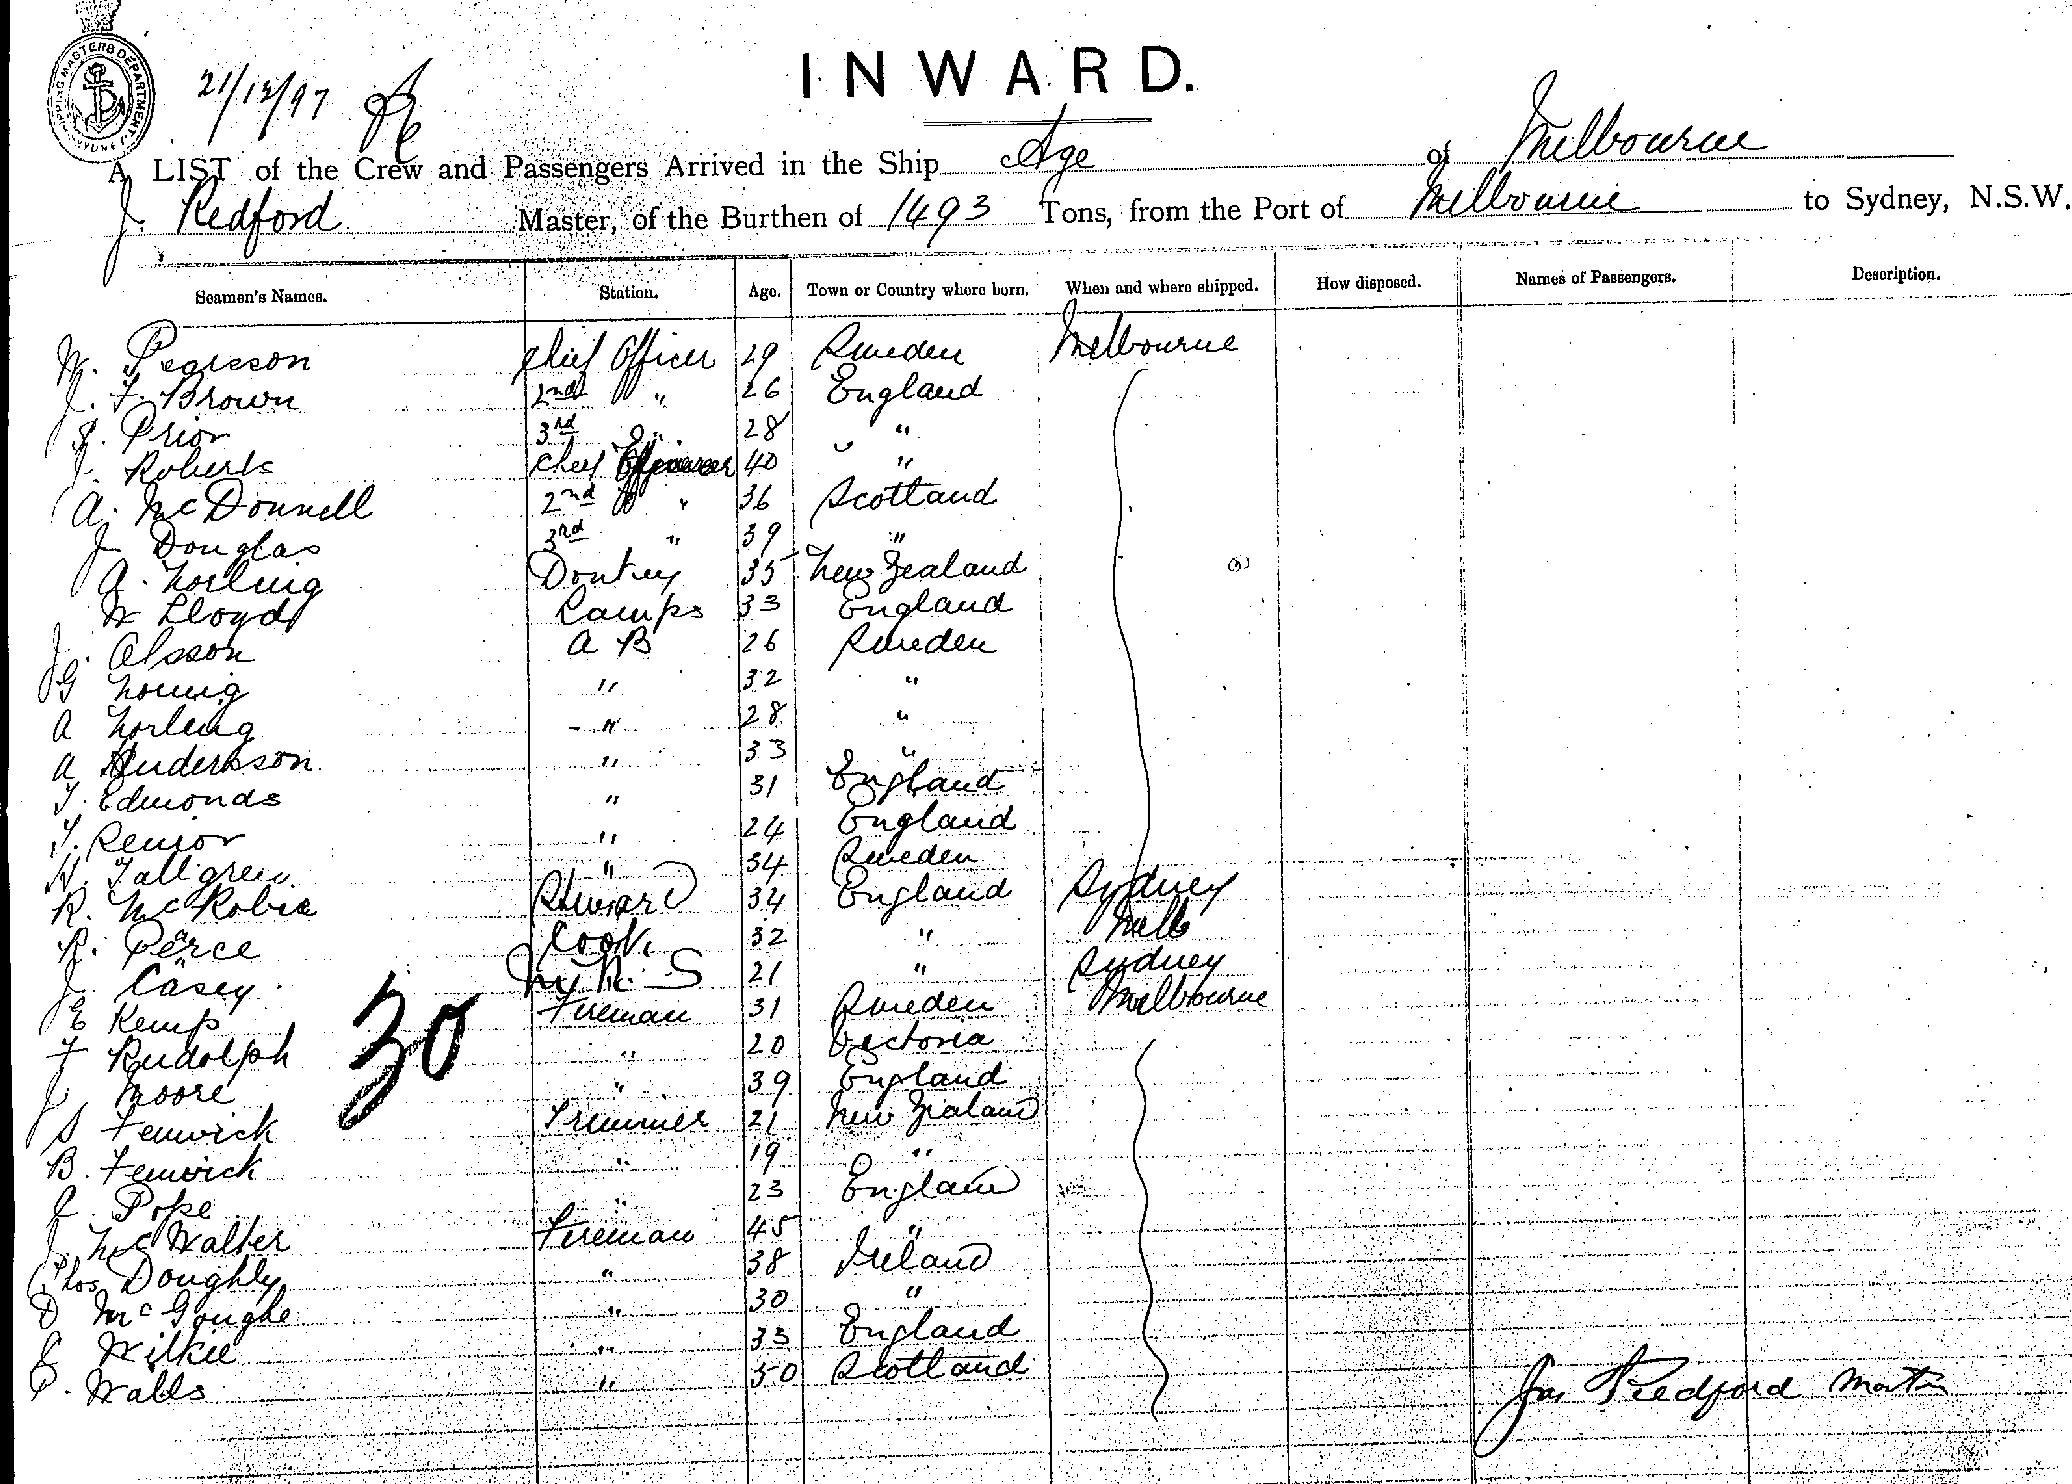 SHIPPING MASTERS DEPARTMENT
21/12/97
INWARD.
A LIST of the Crew and Passengers Arrived in the Ship Age of Melbourne
J. Redford Master, of the Burthen of 1493 Tons, from the Port of Melbourne to Sydney, N.S.W.
Seamen's Names. Station. Age. Town or Country where born. When and where shipped. How disposed. Names of Passengers. Description.
W. Pearsson Chief Officer 29 Sweden Melbourne
J. F. Brown 2nd " 26 England
Prior 3rd " 28 "
J. Roberts Chief Engineer 40 "
A. McDonnell 2nd " 36 Scotland
J Douglas 3rd " 39 "
A. Norling Donkey 35 New Zealand
W Lloyd Lamps 33 England
J. Olsson A B 26 Sweden
G " 32 "
A Norling " 28 "
A Anderson " 33 "
T. Edmonds " 31 England
T. Senior " 24 England
H. Tallgren " 34 Sweden
R. McRobie Steward 34 England Sydney
R. Pearce Cook 32 " Melb
J. Casey M. R. S 21 " Sydney
E Kemp Fireman 31 Sweden Melbourne
F Rudolph " 20 Victoria
J. Moore " 39 England
S Fenwick Trimmer 21 New Zealand
B. Fenwick " 19 "
Pope " 23 England
J. McWalter Fireman 45 "
Thos Doughty " 38 Ireland
D McGoughe " 30 "
Wilkie " 33 England
P. Walls " 50 Scotland
30
Jas Redford Master